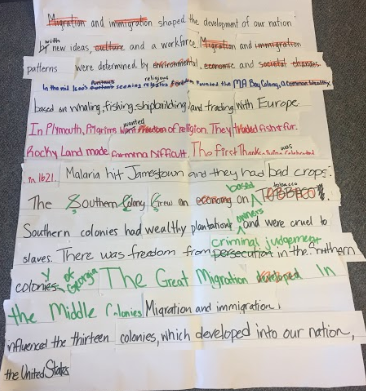 Migration and immigration shaped the development of our nation
by with new ideas, culture and a workforce. Migration and immigration
patterns were determined by environmental, economic and societal changes.
In the mid 1600's Puritans seeking religious freedom formed the MA Bay Colony, a common wealth
based on whaling, fishing, shipbuilding and trading with Europe.
In Plymouth, Pilgrims wanted freedom of religion. They traded fish & fur.
Rocky Land made farming difficult. The first Thanks was celebrated
in 1621. Malaria hit Jamestown and they had bad crops.
The Southern Colony Grew an economy based on tobacco TOBACCO.
Southern colonies had wealthy plantation owners and were cruel to
slaves. There was freedom from criminal judgement persecution in the
colony of Georgia The Great Migration developed In
the Middle Colonies Migration and immigration
influenced the thirteen colonies, which developed into our nation,
the United States